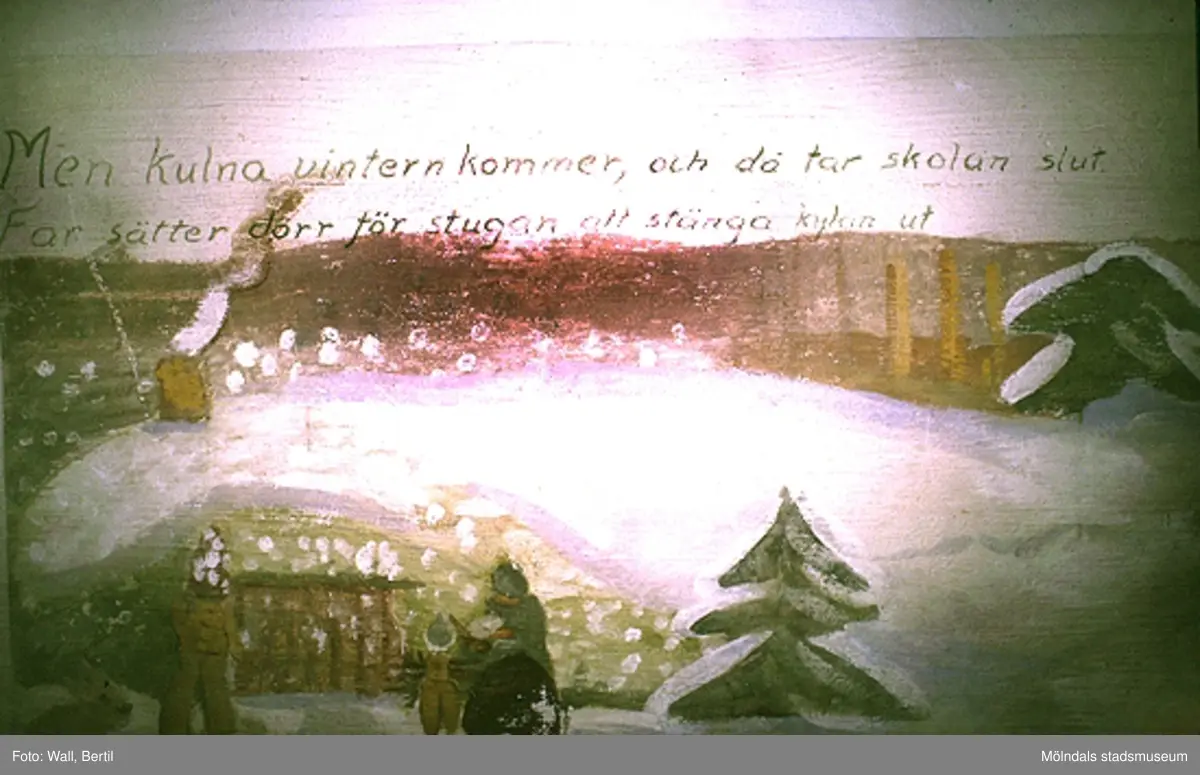 Men kulna vintern kommer, och då tar skolan slut.
Far sätter dörr för stugan att stänga kylan ut
Foto: Wall, Bertil
Mölndals stadsmuseum